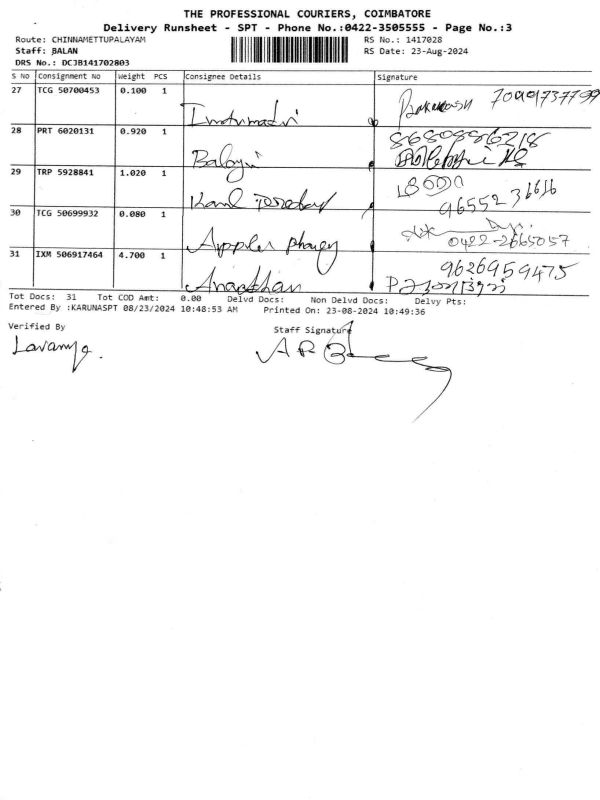 THE PROFESSIONAL COURIERS, COIMBATORE
Delivery Runsheet - SPT - Phone No.:0422-3505555 - Page No.:3
Route: CHINNAMETTUPALAYAM RS No.: 1417028
Staff: BALAN RS Date: 23-Aug-2024
DRS No.: DCJB141702803
S No Consignment No Weight PCS Consignee Details Signature
27 TCG 50700453 0.100 1
Indumadvi
28 PRT 6020131 0.920 1
Balayi
29 TRP 5928841 1.020 1
30 TCG 50699932 0.080 1
96552 36616
0422-2665057
31 IXM 506917464 4.700 1
9626959475
Tot Docs: 31 Tot COD Amt: 0.00 Delvd Docs: Non Delvd Docs: Delvy Pts:
Entered By :KARUNASPT 08/23/2024 10:48:53 AM Printed On: 23-08-2024 10:49:36
Verified By Staff Signature
Lavanya.